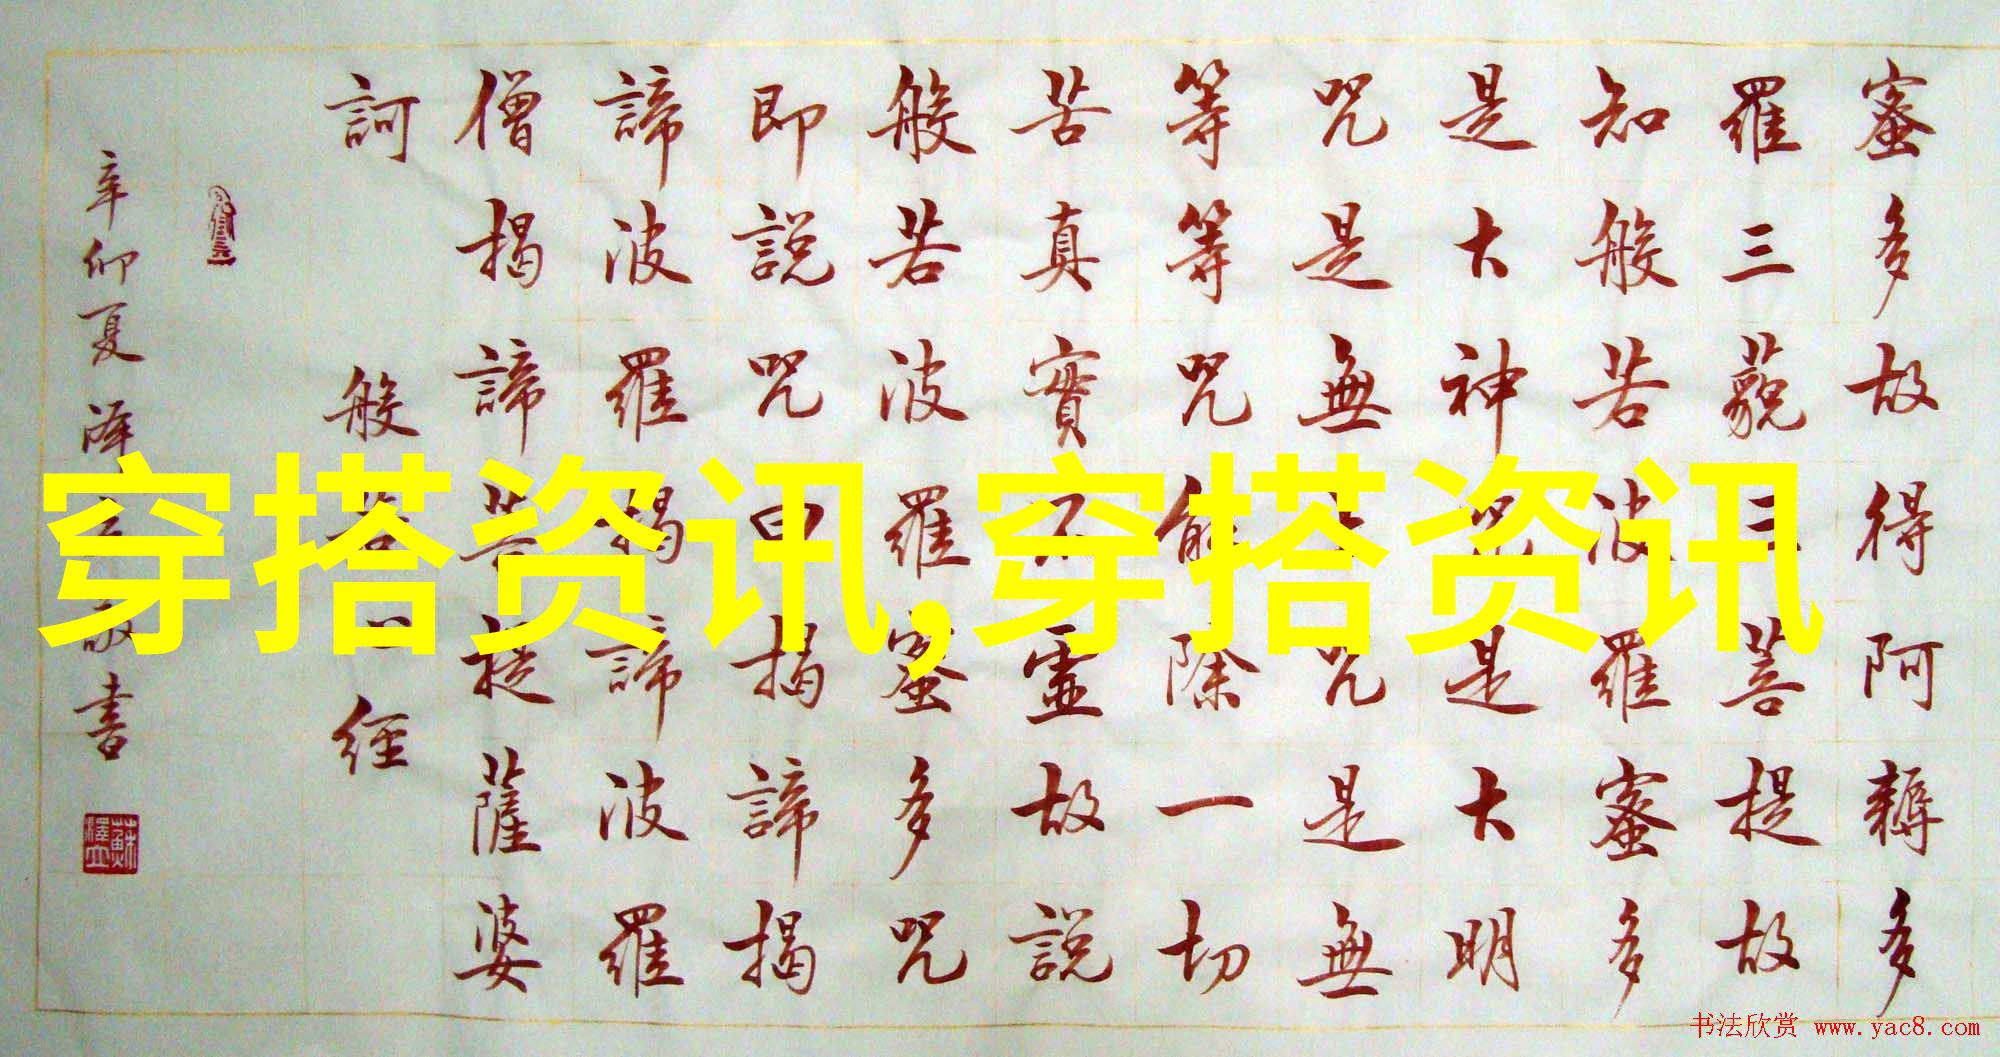 蜜多故得阿耨多
羅三藐三菩提故
知般若波羅蜜多
是大神咒是大明
咒是無上咒是無
等等咒能除一切
苦真實不虛故說
般若波羅蜜多咒
即說咒曰揭諦揭
諦波羅揭諦波羅
僧揭諦菩提薩婆
訶 般若心經
辛卯夏泽立敬書
蘇澤立
穿搭资讯,穿搭资讯
书法欣赏 www.yac8.com